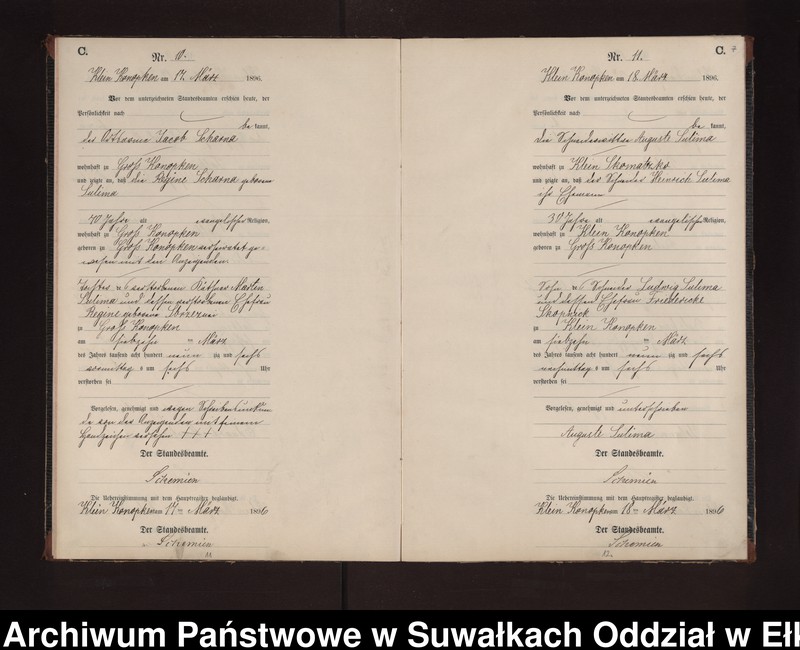 C.
Nr. 10.
Klein Konopken am 17. März 1896.
Vor dem unterzeichneten Standesbeamten erschien heute, der
Persönlichkeit nach
be kannt,
der Jacob Scharna
wohnhaft zu Groß Konopken
und zeigte an, daß die Regine Scharna geborene
Sulima
40 Jahre alt evangelischer Religion,
wohnhaft zu Groß Konopken
geboren zu Groß Konopken verheiratet ge-
wesen mit dem Anzeigenden
Tochter des verstorbenen Martin
Sulima und dessen verstorbenen Ehefrau
Regine geborene
zu Groß Konopken
am siebzehn ten März
des Jahres tausend acht hundert neun zig und sechs
vormittags um sechs Uhr
verstorben sei
Vorgelesen, genehmigt und wegen Schreibensunkun
de von dem Anzeigenden mit seinem
Handzeichen versehen +++
Der Standesbeamte.
Die Uebereinstimmung mit dem Hauptregister beglaubigt.
Klein Konopken am 17 ten März 1896
Der Standesbeamte.
C.
Nr. 11.
Klein Konopken am 18. März 1896.
Vor dem unterzeichneten Standesbeamten erschien heute, der
Persönlichkeit nach
be kannt,
die Auguste Sulima
wohnhaft zu Klein
und zeigte an, daß der Schneider Heinrich Sulima
ihr Ehemann
30 Jahre alt evangelischer Religion,
wohnhaft zu Klein Konopken
geboren zu Groß Konopken
Sohn des Schneider Ludwig Sulima
und dessen Ehefrau Friedericke
zu Klein Konopken
am siebzehn ten März
des Jahres tausend acht hundert neun zig und sechs
nachmittags um sechs Uhr
verstorben sei
Vorgelesen, genehmigt und unterschrieben
Auguste Sulima
Der Standesbeamte.
Die Uebereinstimmung mit dem Hauptregister beglaubigt.
Klein Konopken am 18 ten März 1896
Der Standesbeamte.
Archiwum Państwowe w Suwałkach Oddział w Ełk